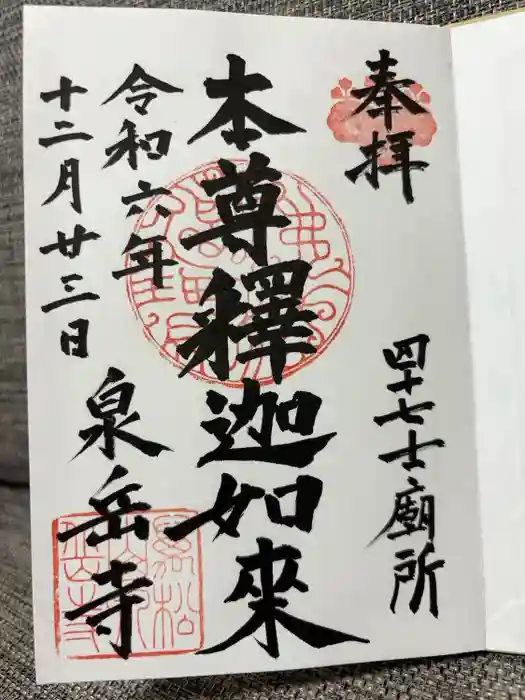 奉拝
四十七士廟所
本尊釋迦如來
令和六年
十二月廿三日
泉岳寺